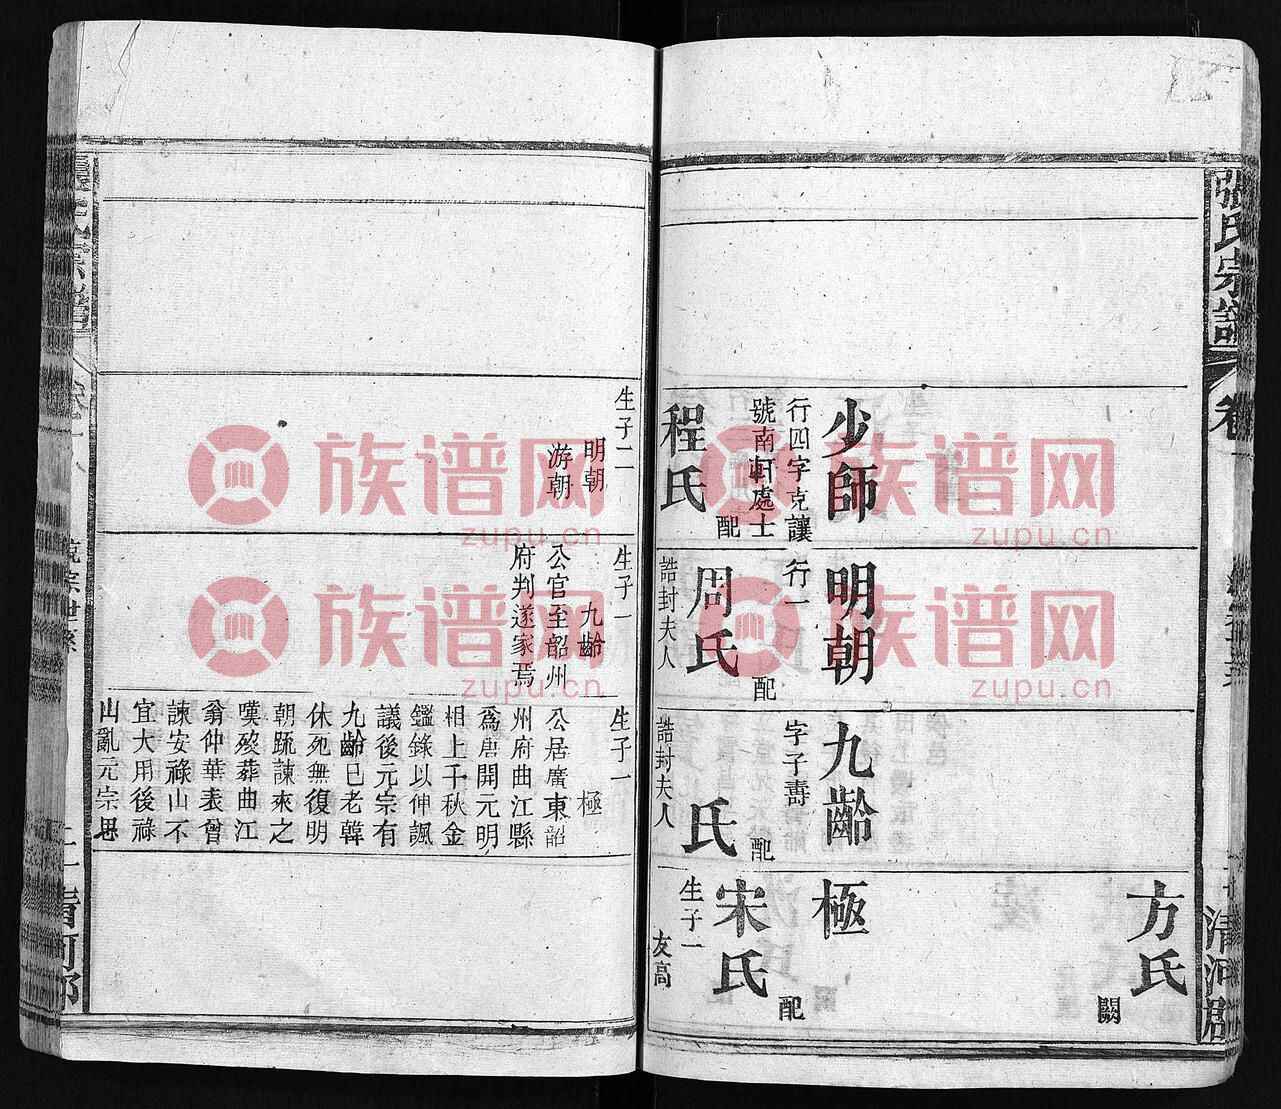 張氏宗譜
卷
清河郡
方氏
闕
少師
行四字克讓
號南軒處士
配
程氏
明朝
行一
配
周氏
誥封夫人
九齡
字子壽
配
氏
誥封夫人
極
配
宋氏
生子一
友高
生子二
明朝
游朝
生子一
九齡
公官至韶州
府判遂家焉
生子一
極
公居廣東韶
州府曲江縣
爲唐開元明
相上千秋金
鑑錄以伸諷
議後元宗有
九齡已老韓
休死無復明
朝䟽諫來之
嘆歿葬曲江
翁仲華表曾
諫安祿山不
宜大用後祿
山亂元宗思
清河郡
族谱网
zupu.cn
族谱网
zupu.cn
族谱网
zupu.cn
族谱网
zupu.cn